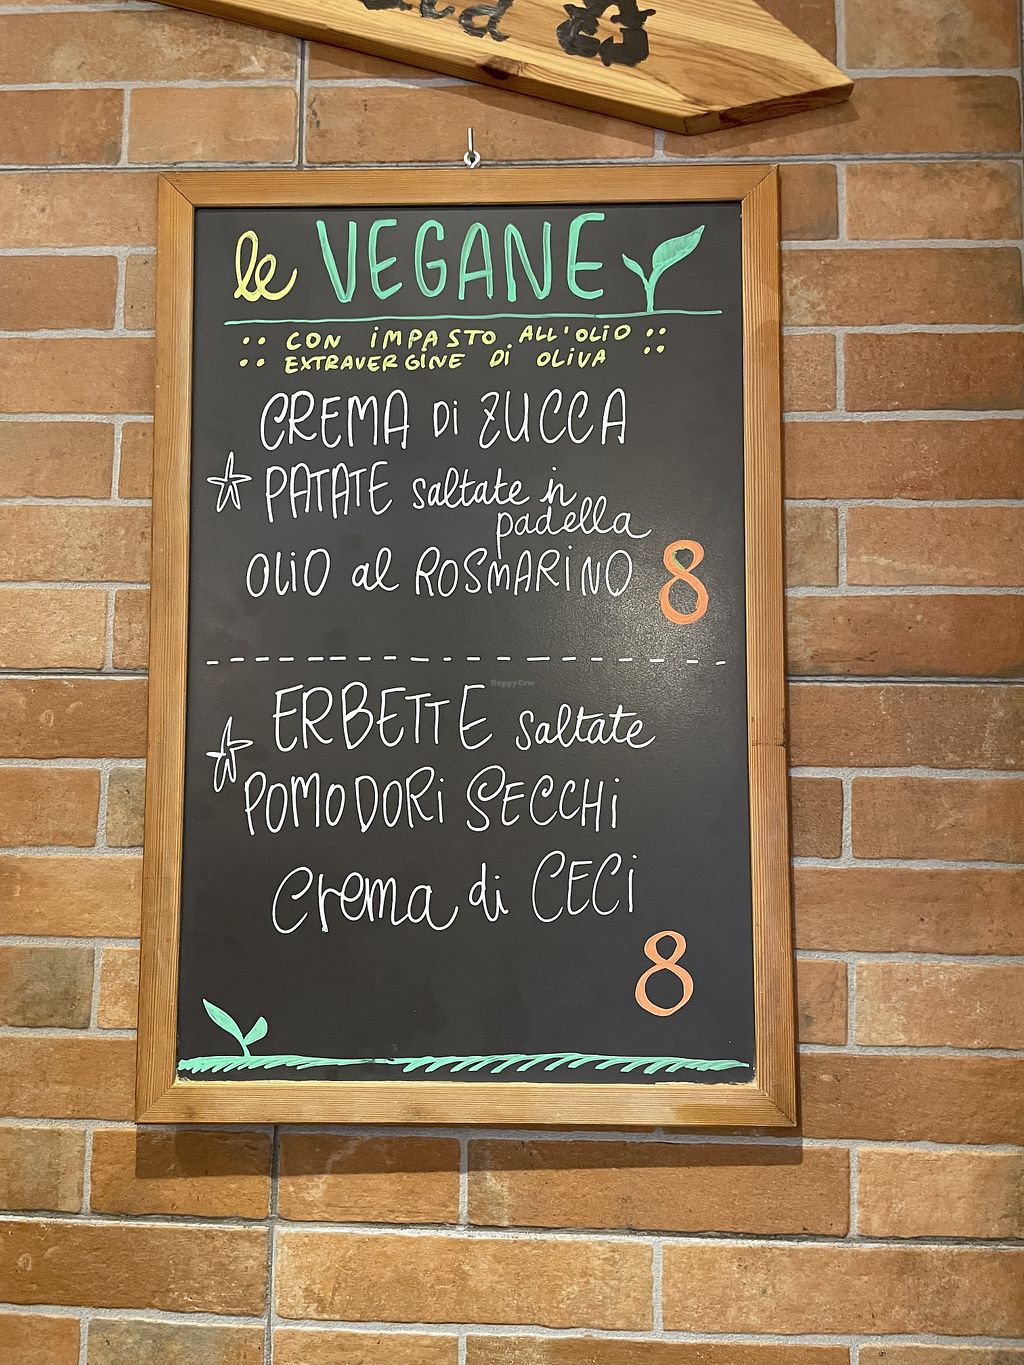 le VEGANE
CON IMPASTO ALL'OLIO
EXTRAVERGINE DI OLIVA
CREMA Di ZUCCA
PATATE saltate in
padella
OLIO al ROSMARINO 8
ERBETTE saltate
POMODORi SECCHi
Crema di CECi
8
HappyCow